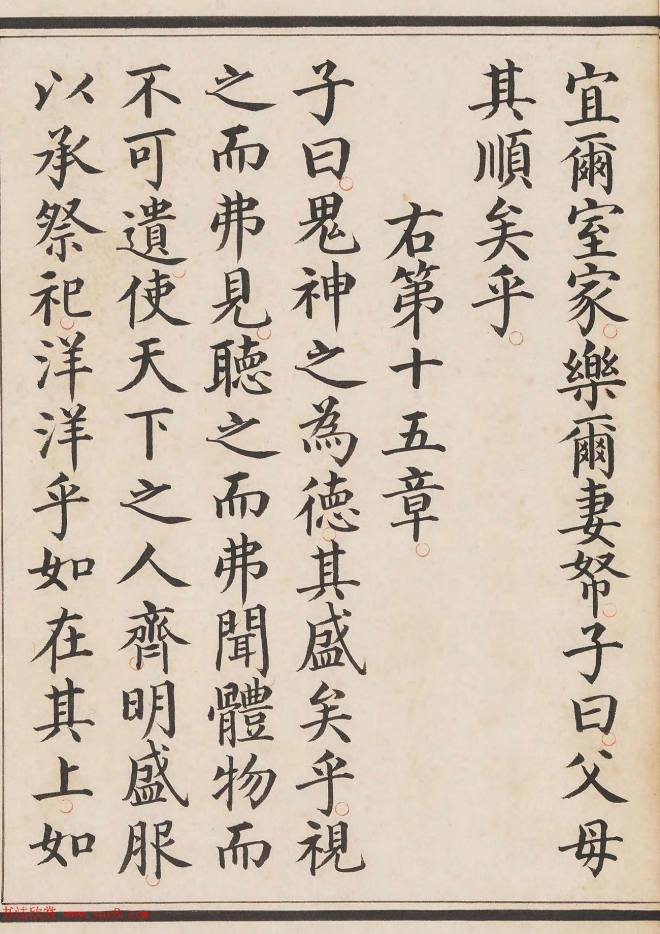 宜爾室家樂爾妻帑子曰父母
其順矣乎
右第十五章
子曰鬼神之為德其盛矣乎視
之而弗見聽之而弗聞體物而
不可遺使天下之人齊明盛服
以承祭祀洋洋乎如在其上如
书法欣赏